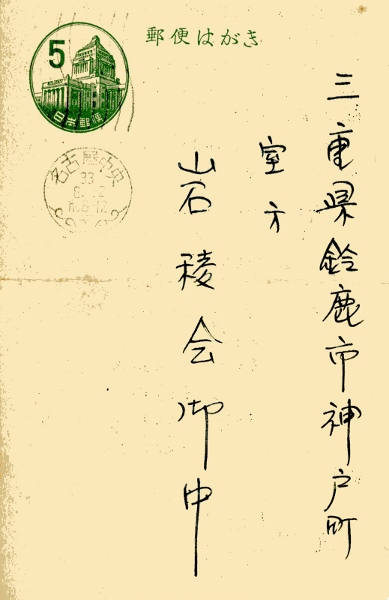 郵便はがき
5
日本郵便
名古屋中央
33
三重県鈴鹿市神戸町
室方
岩稜会御中